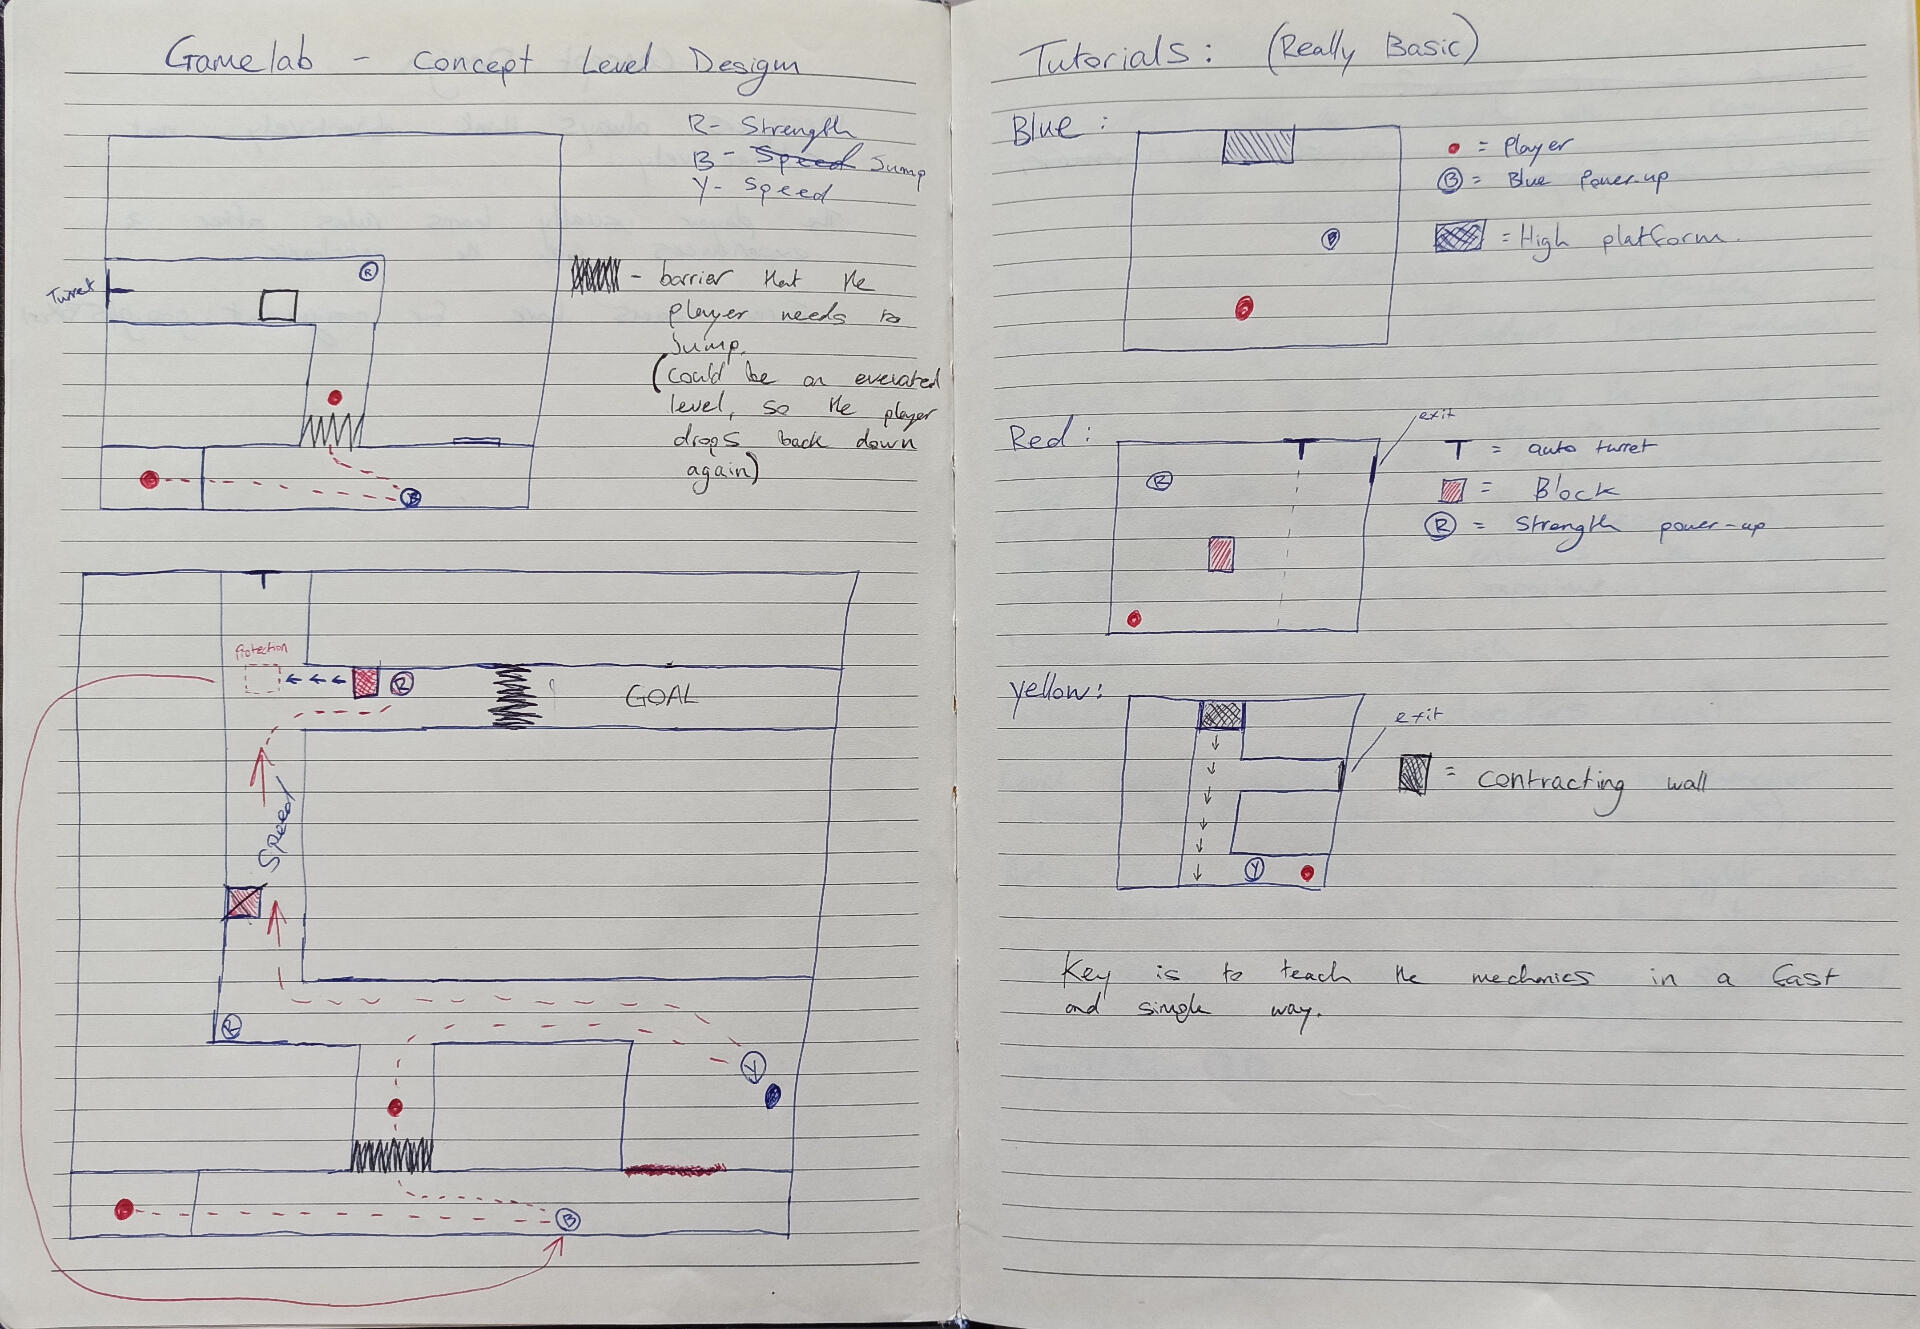 Gamelab - Concept Level Design
R- Strength
B - Speed Jump
Y- Speed
Turret
R
- barrier that the
player needs to
Jump.
(could be an evevated
level, so the player
drops back down
again)
B
Protection
R
GOAL
Speed
R
Y
B
Tutorials: (Really Basic)
Blue:
B
= Player
B = Blue Power-up
= High platform.
Red:
exit
R
T = auto turret
= Block
R = Strength power-up
yellow:
exit
Y
= contracting wall
Key is to teach the mechanics in a fast
and simple way.